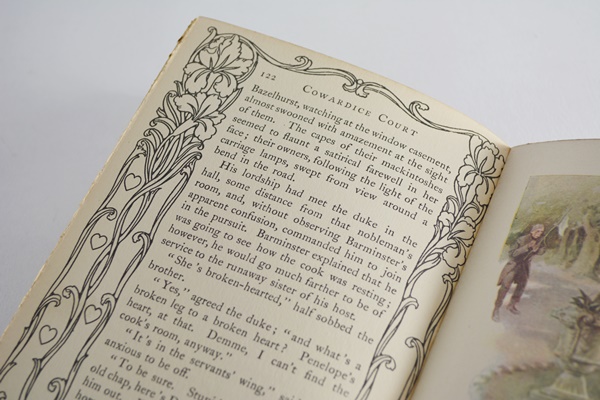 122
COWARDICE COURT
Bazelhurst, watching at the window casement,
almost swooned with amazement at the sight
of them. The capes of their mackintoshes
seemed to flaunt a satirical farewell in her
face; their owners, following the light of the
carriage lamps, swept from view around a
bend in the road.
His lordship had met the duke in the
hall, some distance from that nobleman's
room, and, without observing Barminster's
apparent confusion, commanded him to join
in the pursuit. Barminster explained that he
was going to see how the cook was resting;
however, he would go much farther to be of
service to the runaway sister of his host.
"She's broken-hearted," half sobbed the
brother.
"Yes," agreed the duke; "and what's a
broken leg to a broken heart? Penelope's
heart, at that. Demme, I can't find the
cook's room, anyway."
"It's in the servants' wing,"
anxious to be off.
"To be sure.
old chap, here's
him out.